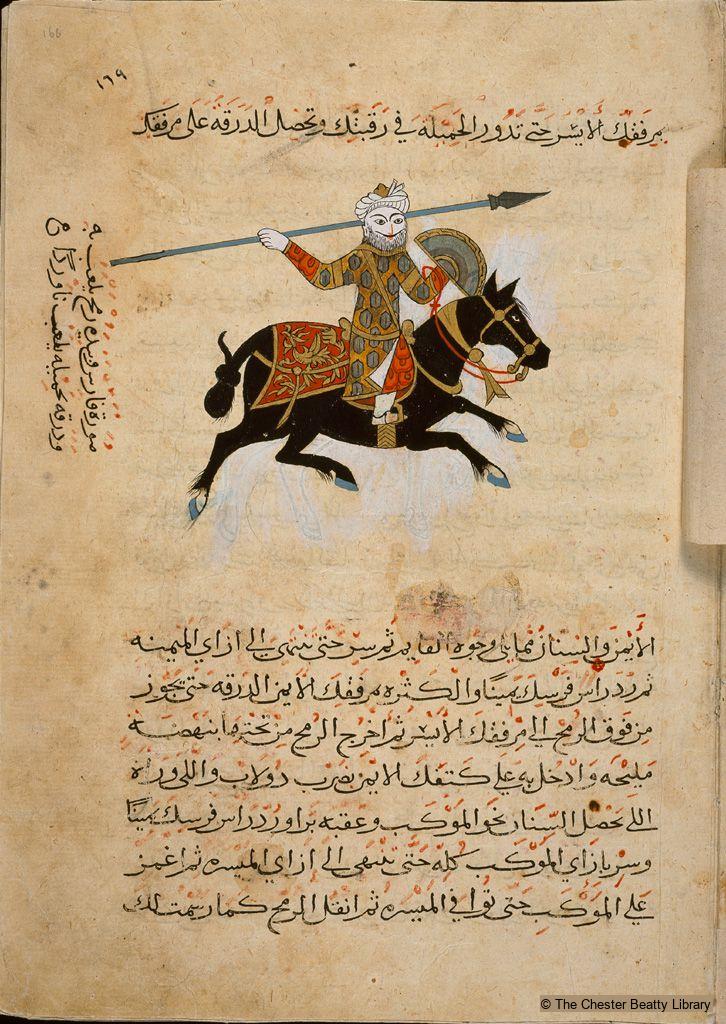 166
١٦٩
مرفقك الأيسر حتى تدور الحميلة في رقبتك وتحصل الدرقة على مرفقك
صورة فارس وبيده رمح يلعب به
ودرقه بحميله يلعب ناورد
الأيمن والسنان مما يلي وجوه القايم ثم سر حتى تنتهي الى ازاي الميمنه
ثم رد راس فرسك يمينا والكثره مرفقك الايمن الدرقه حتى يجوز
من فوق الرمح الى مرفقك الأيسر ثم اخرج الرمح من تحتها بنهضه
مليحه وادخل به على كتفك الايمن بضرب دولاب واللى وراه
اللى تحصل السنان نحو الموكب وعقبه برا ورد راس فرسك يمينا
وسر بازاي الموكب كله حتى تنتهى الى ازاي الميسره ثم اغمز
على الموكب حتى توافي الميسره ثم انقل الرمح كما رسمت لك
© The Chester Beatty Library